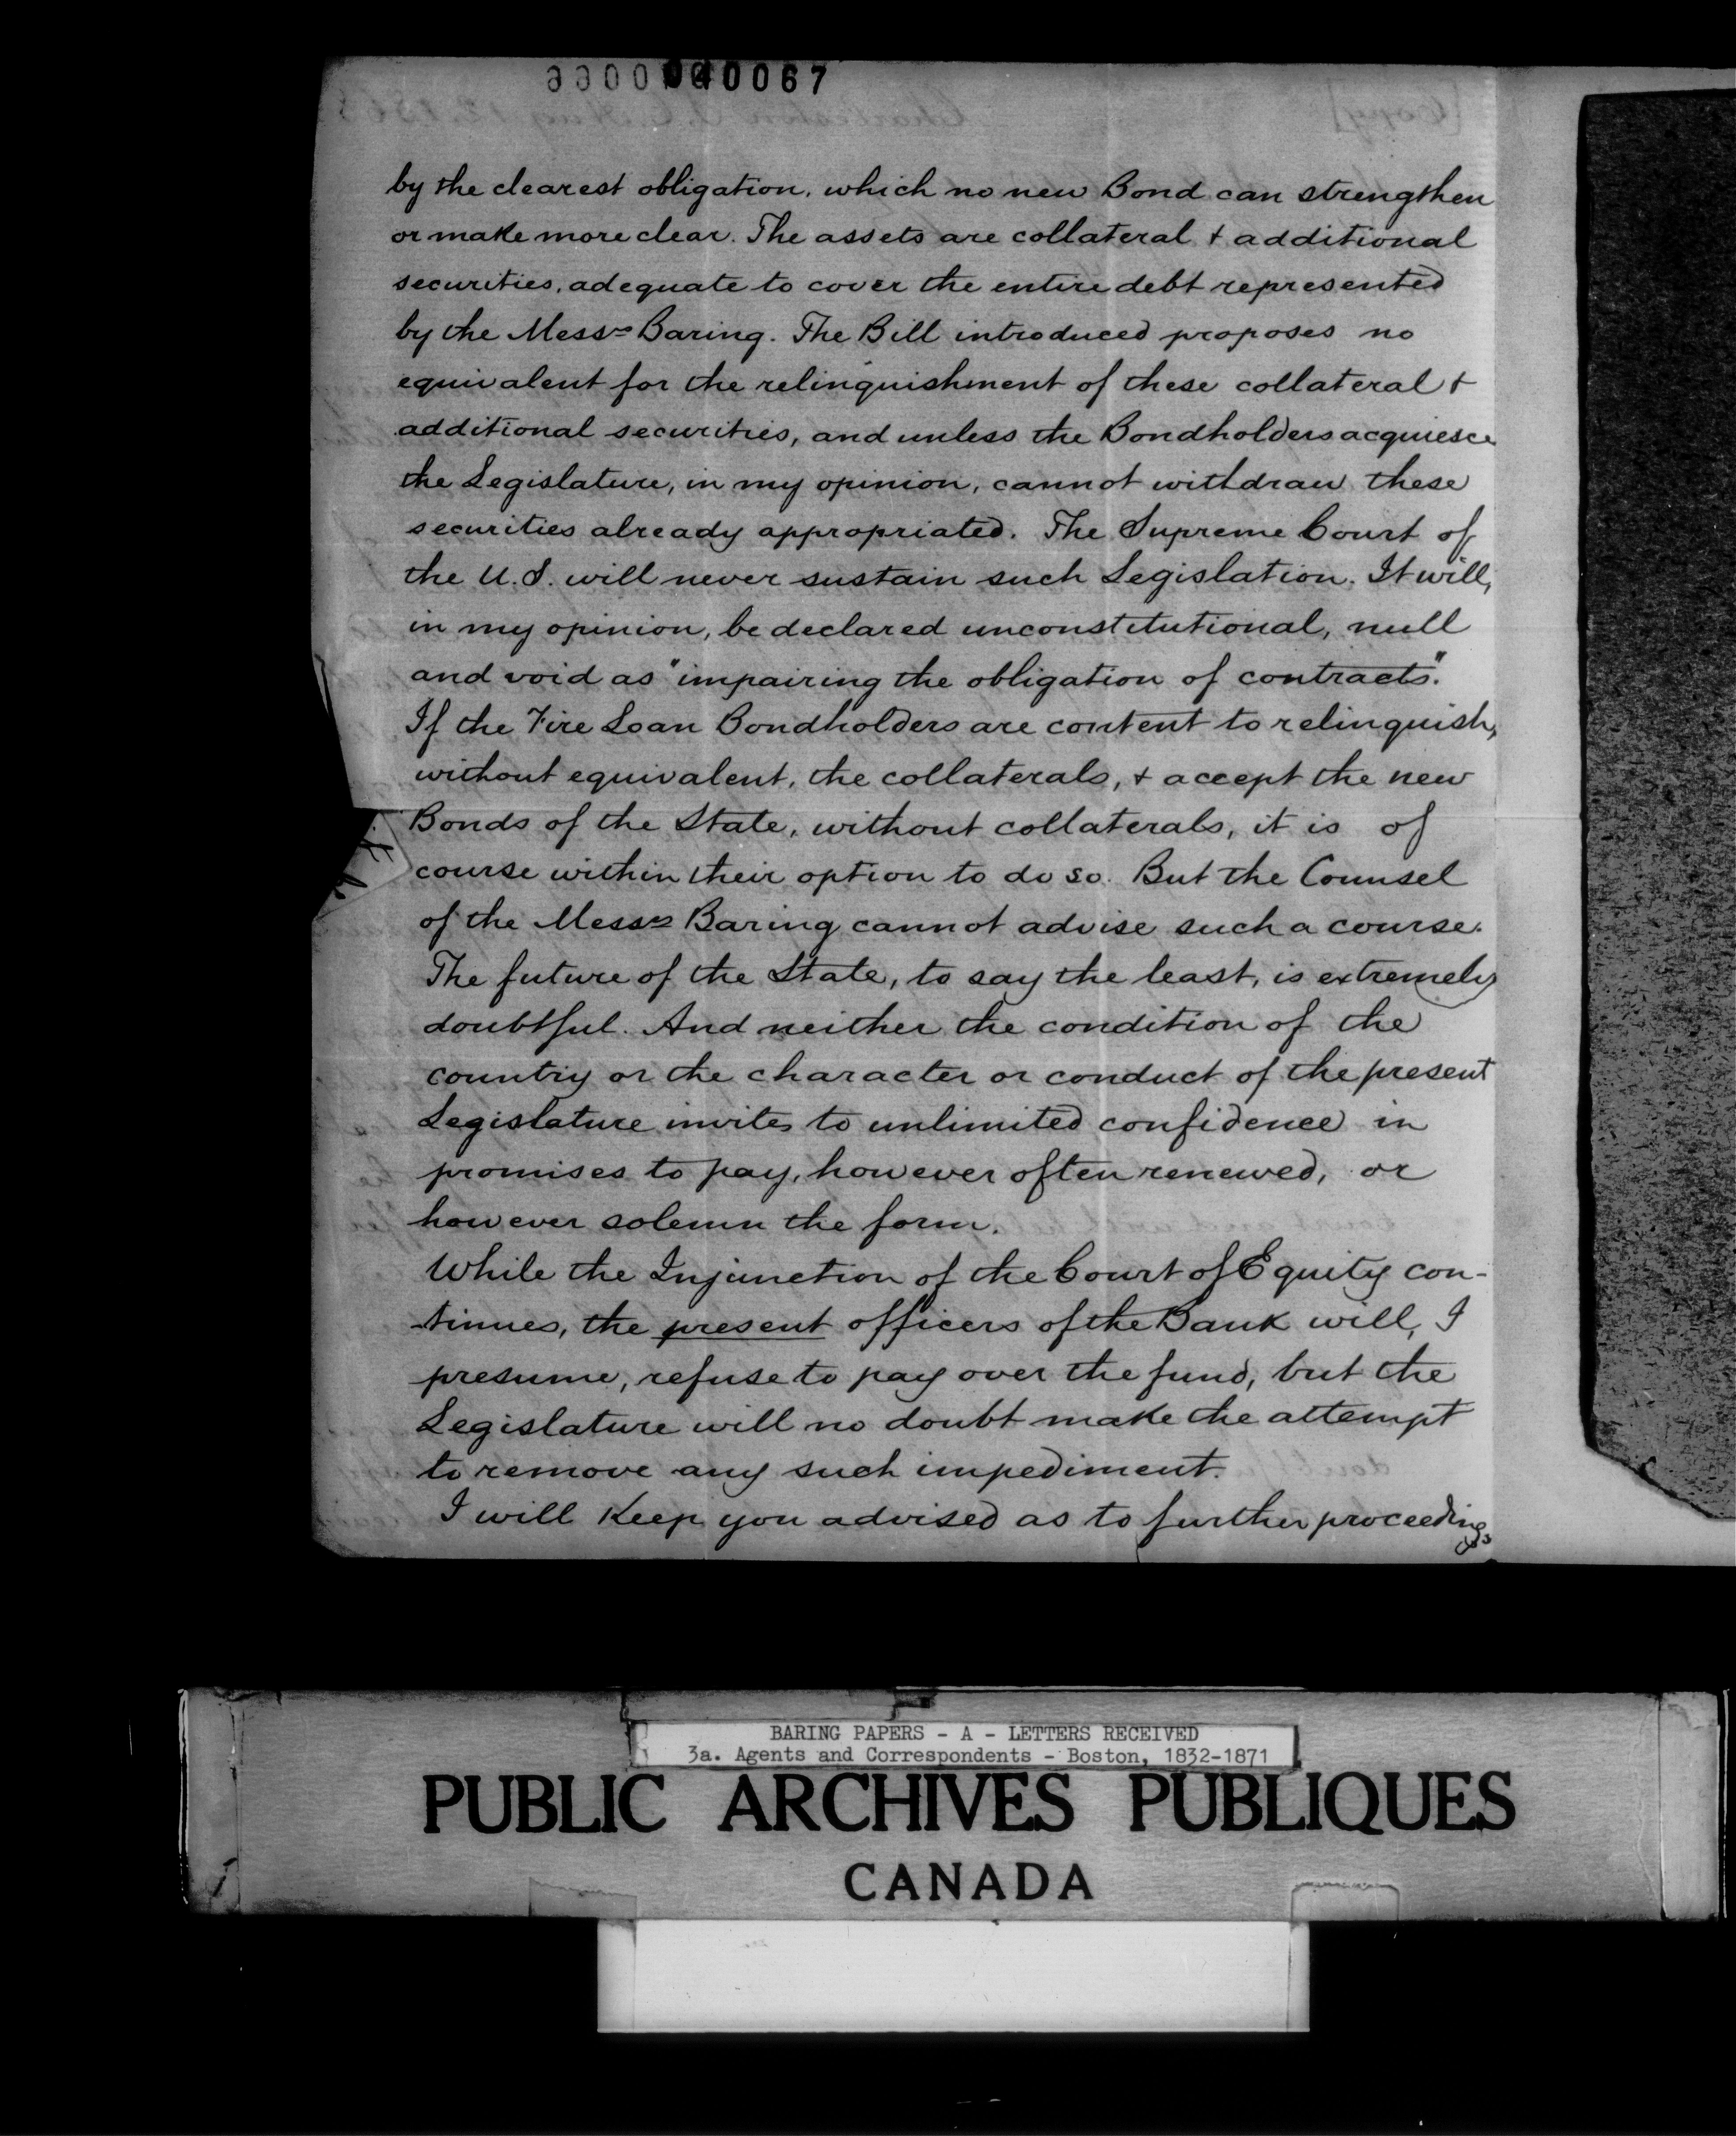 040067
by the clearest obligation, which no new Bond can strengthen
or make more clear. The assets are collateral & additional
securities, adequate to cover the entire debt represented
by the Messrs Baring. The Bill introduced proposes no
equivalent for the relinquishment of these collateral &
additional securities, and unless the Bondholders acquiesce
the Legislature, in my opinion, cannot withdraw these
securities already appropriated. The Supreme Court of
the U.S. will never sustain such Legislation. It will,
in my opinion, be declared unconstitutional, null
and void as "impairing the obligation of contracts."
If the Fire Loan Bondholders are content to relinquish,
without equivalent, the collaterals, & accept the new
Bonds of the State, without collaterals, it is of
course within their option to do so. But the Counsel
of the Messrs Baring cannot advise such a course.
The future of the State, to say the least, is extremely
doubtful. And neither the condition of the
country or the character or conduct of the present
Legislature invites to unlimited confidence in
promises to pay, however often renewed, or
however solemn the form.
While the Injunction of the Court of Equity con-
tinues, the present officers of the Bank will, I
presume, refuse to pay over the fund, but the
Legislature will no doubt make the attempt
to remove any such impediment.
I will keep you advised as to further proceedings
BARING PAPERS - A - LETTERS RECEIVED
3a. Agents and Correspondents - Boston, 1832-1871
PUBLIC ARCHIVES PUBLIQUES
CANADA